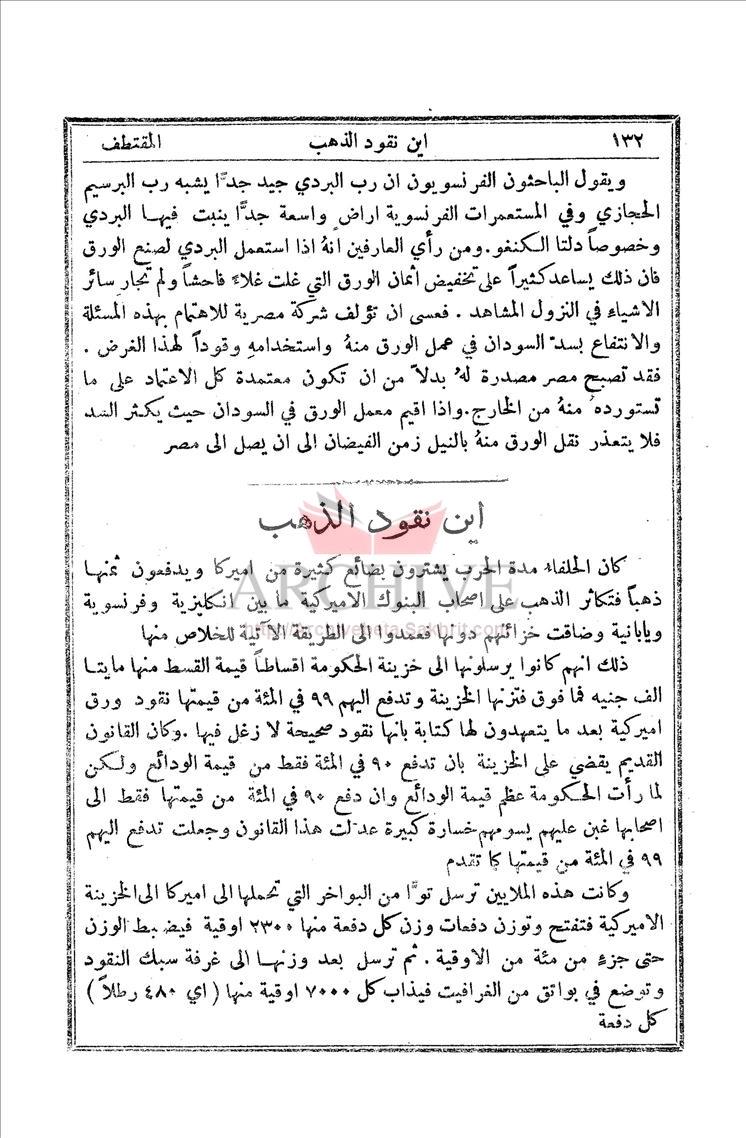 ١٣٢ اين نقود الذهب المقتطف
ويقول الباحثون الفرنسويون ان رب البردي جيد جدًّا يشبه رب البرسيم
الحجازي وفي المستعمرات الفرنسوية اراضٍ واسعة جدًّا ينبت فيها البردي
وخصوصاً دلتا الكنغو. ومن رأي العارفين انهُ اذا استعمل البردي لصنع الورق
فان ذلك يساعد كثيراً على تخفيض اثمان الورق التي غلت غلاءً فاحشاً ولم تجارِ سائر
الاشياء في النزول المشاهد . فعسى ان تؤلف شركة مصرية للاهتمام بهذه المسئلة
والانتفاع بسدّ السودان في عمل الورق منهُ واستخدامهِ وقوداً لهذا الغرض .
فقد تصبح مصر مصدرة لهُ بدلاً من ان تكون معتمدة كل الاعتماد على ما
تستوردهُ منهُ من الخارج. واذا اقيم معمل الورق في السودان حيث يكثر السد
فلا يتعذر نقل الورق منهُ بالنيل زمن الفيضان الى ان يصل الى مصر
اين نقود الذهب
كان الحلفاء مدة الحرب يشترون بضائع كثيرة من اميركا ويدفعون ثمنها
ذهباً فتكاثر الذهب على اصحاب البنوك الاميركية ما بين انكليزية وفرنسوية
ويابانية وضاقت خزائنهم دونها فعمدوا الى الطريقة الآتية للخلاص منها
ذلك انهم كانوا يرسلونها الى خزينة الحكومة اقساطاً قيمة القسط منها مايتا
الف جنيه فما فوق فتزنها الخزينة وتدفع اليهم ٩٩ في المئة من قيمتها نقود ورق
اميركية بعد ما يتعهدون لها كتابة بانها نقود صحيحة لا زغل فيها . وكان القانون
القديم يقضي على الخزينة بان تدفع ٩٠ في المئة فقط من قيمة الودائع ولكن
لما رأت الحكومة عظم قيمة الودائع وان دفع ٩٠ في المئة من قيمتها فقط الى
اصحابها غبن عليهم يسومهم خسارة كبيرة عدّلت هذا القانون وجعلت تدفع اليهم
٩٩ في المئة من قيمتها كما تقدم
وكانت هذه الملايين ترسل توًّا من البواخر التي تحملها الى اميركا الى الخزينة
الاميركية فتفتح وتوزن دفعات وزن كل دفعة منها ٢٣٠٠ اوقية فيضبط الوزن
حتى جزءٍ من مئة من الاوقية . ثم ترسل بعد وزنها الى غرفة سبك النقود
وتوضع في بواتق من الغرافيت فيذاب كل ٧٠٠٠ اوقية منها ( اي ٤٨٠ رطلاً )
كل دفعة
ARCHIVE
http://Archivebeta.Sakhrit.com